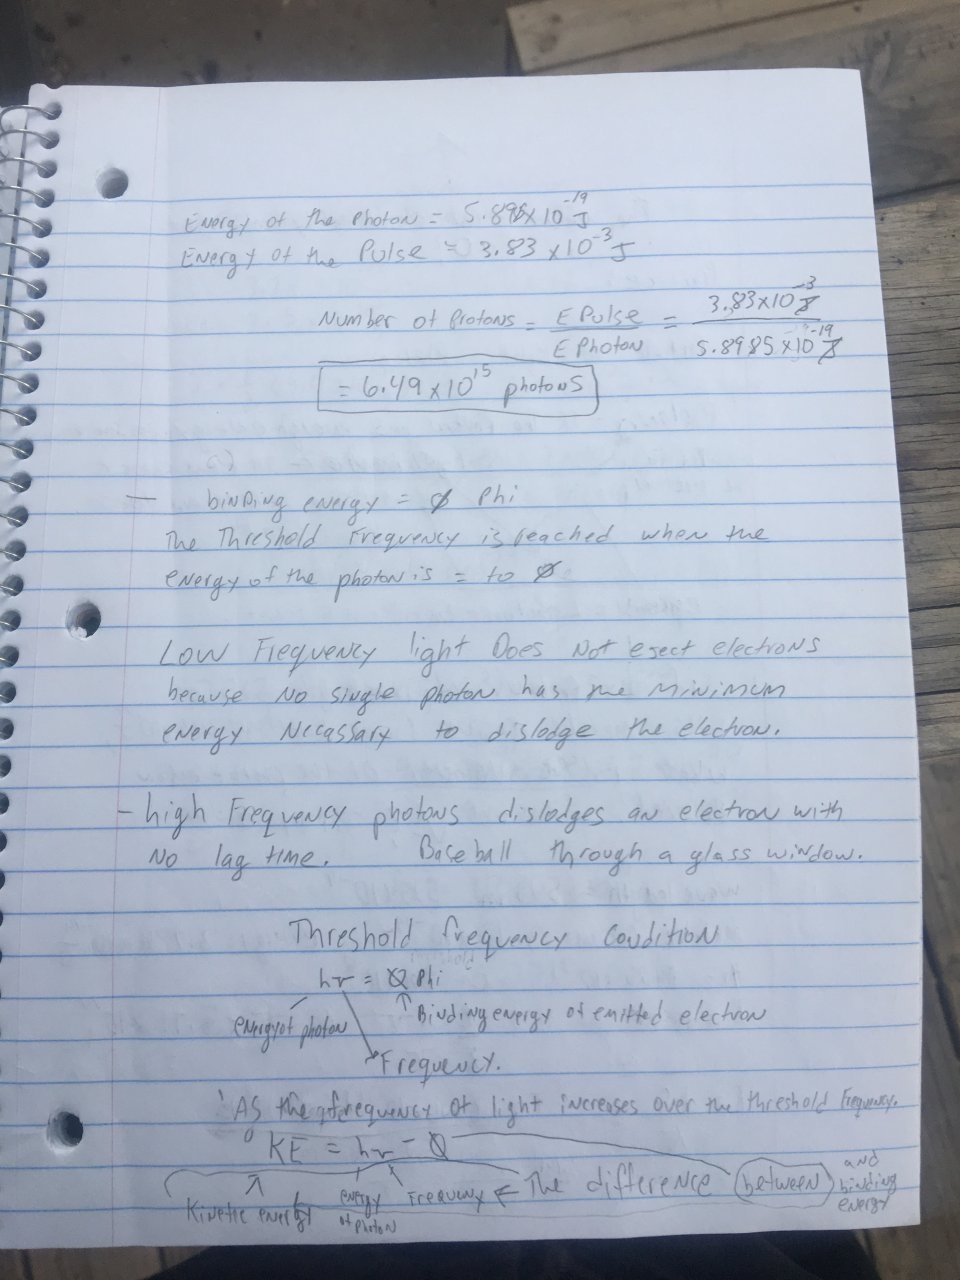 Energy of the Photon = 5.895x10⁻¹⁹ J
Energy of the Pulse = 3.83 x10⁻³ J
Number of Protons = E Pulse / E Photon = 3.83x10⁻³ J / 5.8985 x10⁻¹⁹ J
= 6.49 x10¹⁵ photons
binding energy = ϕ Phi
The Threshold Frequency is reached when the
energy of the photon is = to ϕ
Low Frequency light Does Not eject electrons
because No single photon has the Minimum
energy Necassary to dislodge the electron.
- high Frequency photons dislodges an electron with
No lag time. Baseball through a glass window.
Threshold frequency Condition
hv = ϕ Phi
energy of photon
Binding energy of emitted electron
Frequency.
As the frequency of light increases over the threshold frequency.
KE = hv - ϕ
Kinetic energy energy of photon Frequency ← The difference between and binding energy